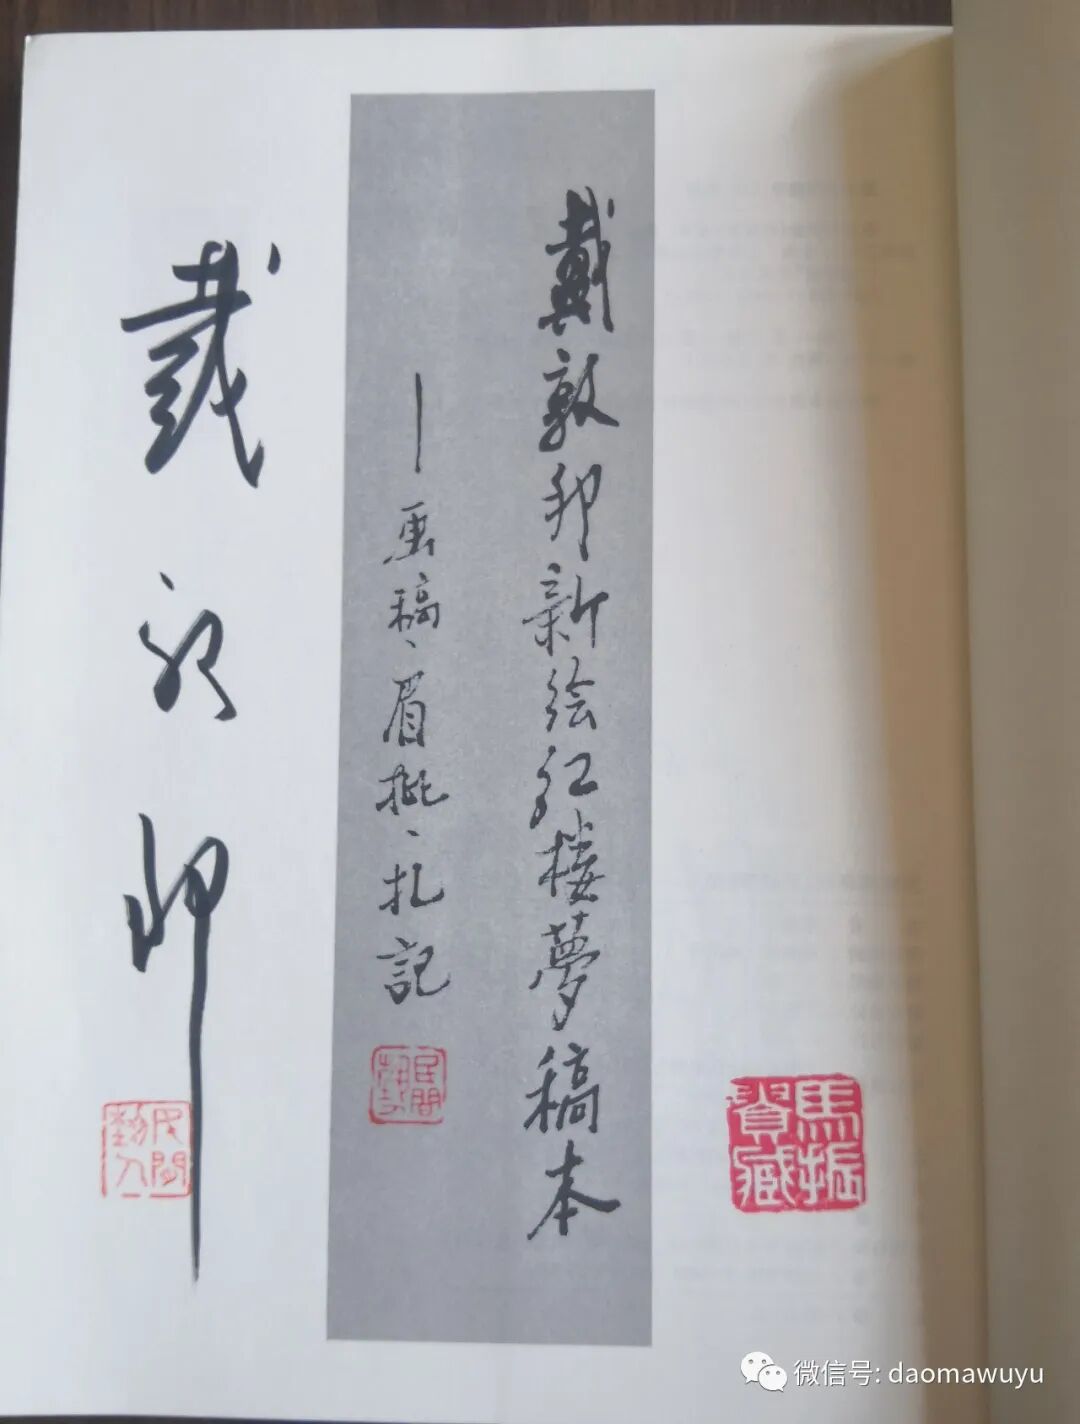 戴敦邦新绘红楼夢稿本
—画稿、眉批、札記
戴敦邦
民間藝人
馬振資藏
微信号: daomawuyu